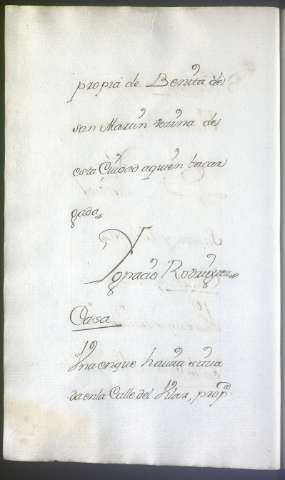 propia de Benita de
san Martin vezina de
esta Ciudad a quien ha car
gado
Ygnacio Rodriguez
Casa
Una en que havita situa
da en la Calle del Pilar, prop.ª